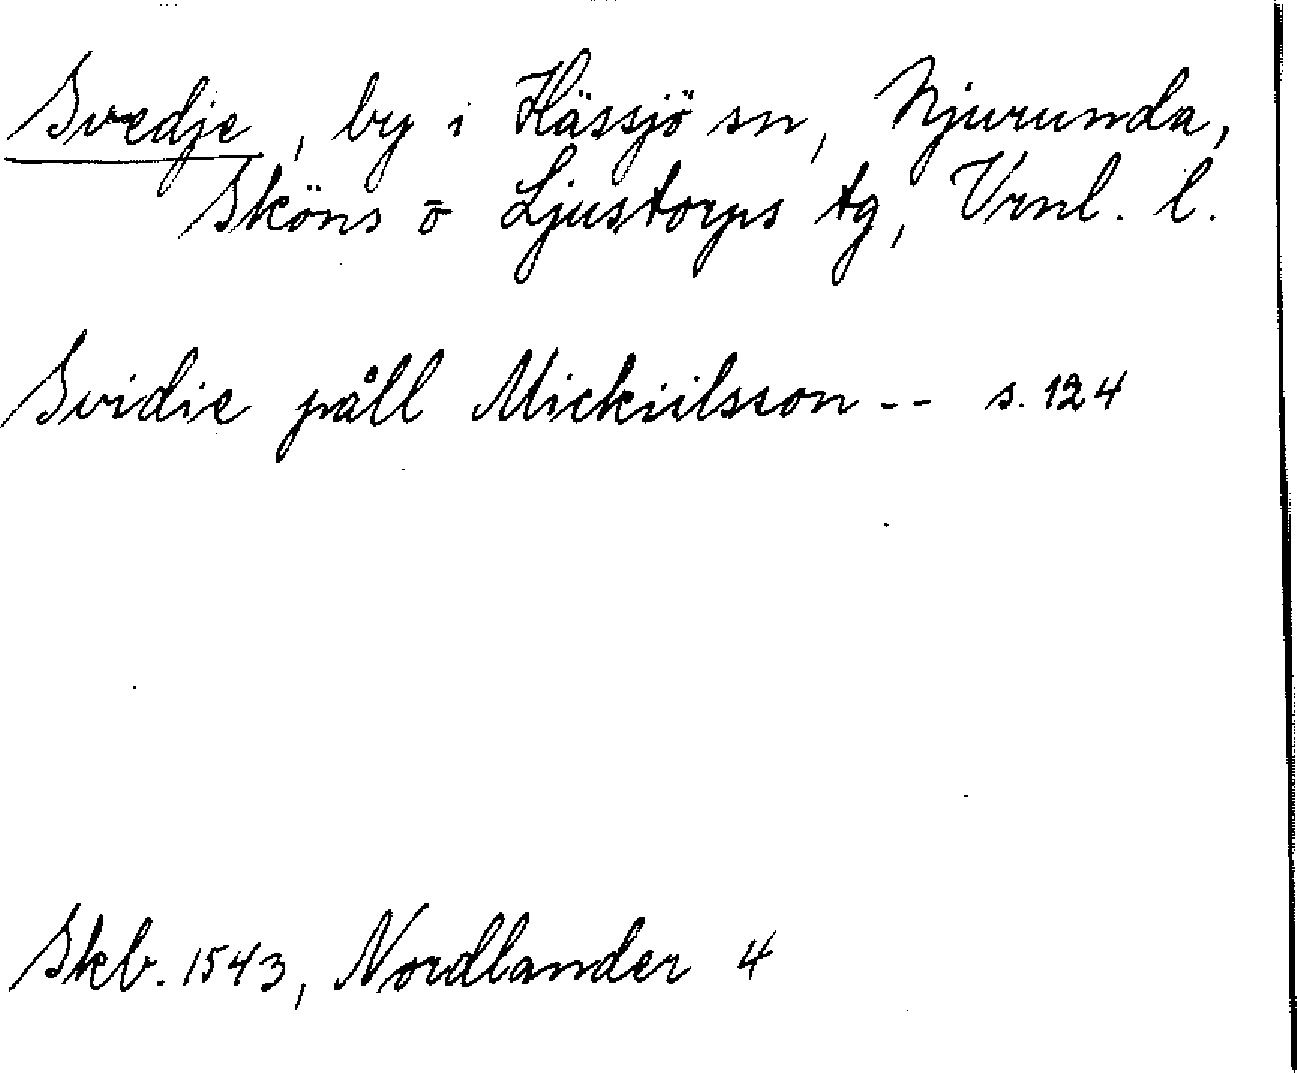 Svedje, by i Hässjö sn, Njurunda,
Sköns o Ljustorps tg, Vrnl. l.
Svidie påll Mickiilsson -- s. 124
Skb. 1543, Nordlander 4